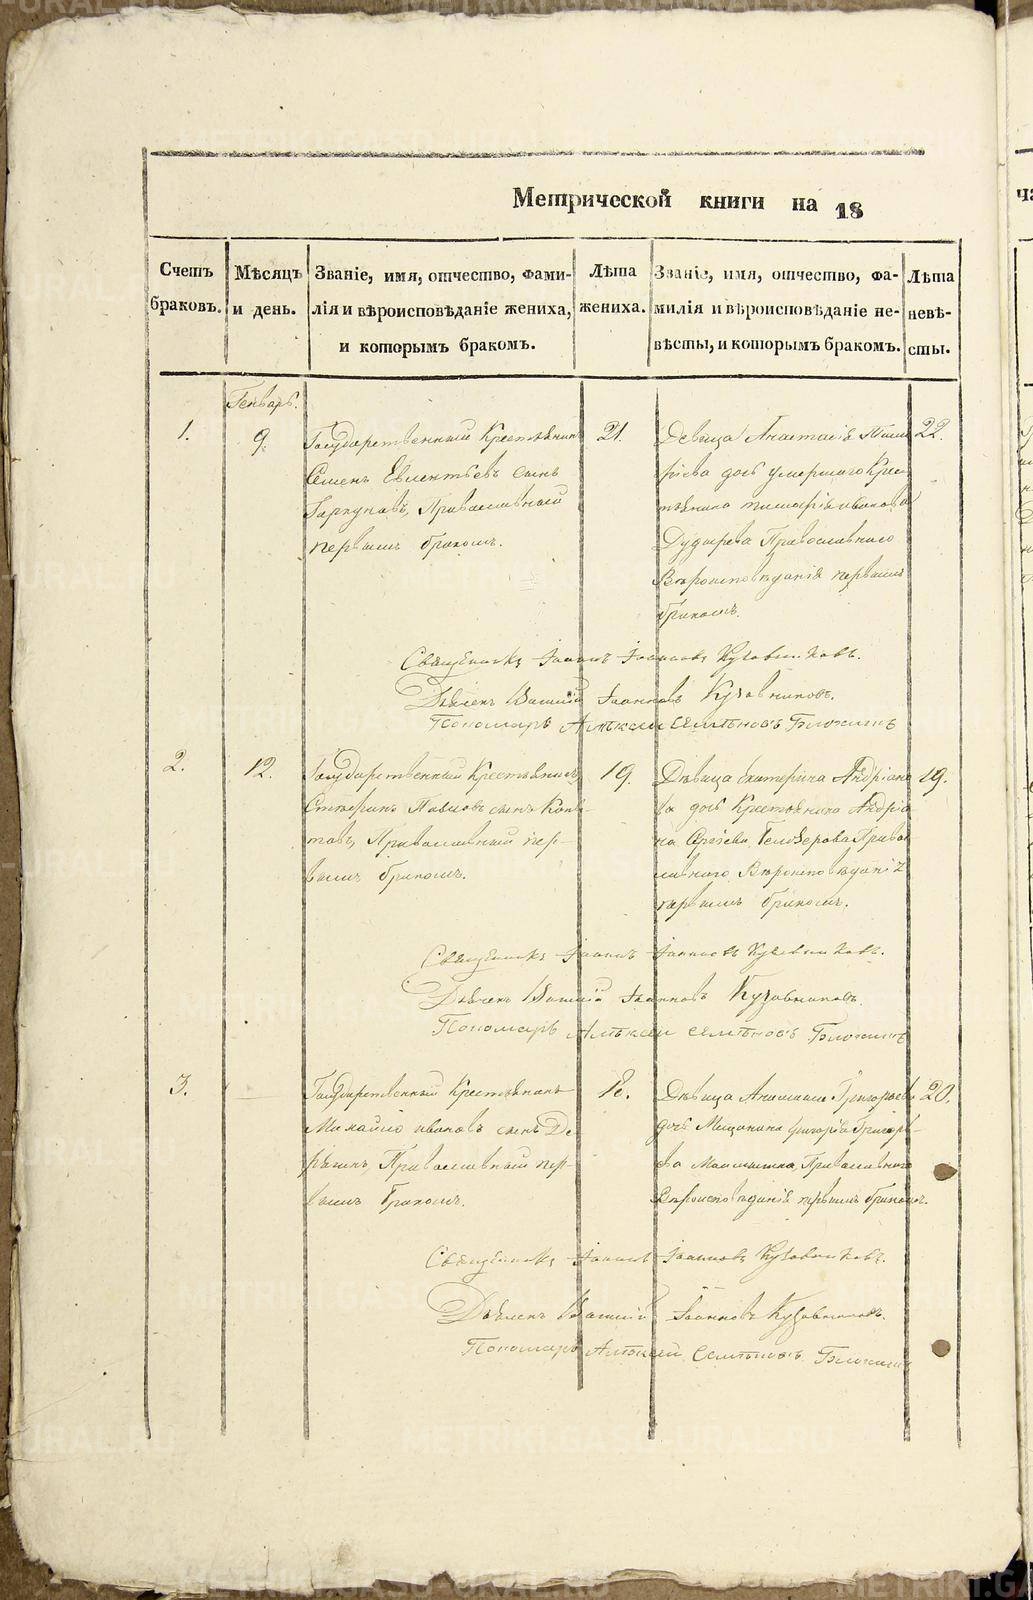 Метрической книги на 18
Счетъ браковъ.
Мѣсяцъ и день.
Званіе, имя, отчество, фами-
лія и вѣроисповѣданіе жениха,
и которымъ бракомъ.
Лѣта жениха.
Званіе, имя, отчество, фа-
милія и вѣроисповѣданіе не-
вѣсты, и которымъ бракомъ.
Лѣта невѣ-
сты.
Генварь.
1.
9.
Государственный Крестьянинъ
Семенъ сынъ
Православный
первымъ бракомъ.
21.
Девица Анастасія
дочь умершаго Крес-
тьянина Иванова
Православнаго
Вероисповеданія первымъ
бракомъ.
22.
Священникъ Іоаннъ Іоанновъ Кузовниковъ.
Дьячекъ Василій Іоанновъ Кузовниковъ.
Пономарь Алѣксей Семѣновъ
2.
12.
Государственный Крестьянинъ
Павловъ сынъ
Православный пер-
вымъ бракомъ.
19.
Дѣвица Екатерина Андріано
ва дочь Крестьянина Андрія
на Православ
наго Вѣроисповѣданія
первымъ бракомъ.
19.
Священникъ Іоаннъ Іоанновъ Кузовниковъ.
Дьячекъ Василій Іоанновъ Кузовниковъ.
Пономарь Алѣксей Семѣновъ
3.
Государственный Крестьянинъ
Михайло Ивановъ сынъ
Православный пер-
вымъ бракомъ.
18.
Дѣвица Григорьева
дочь Мещанина Григорія Григорь-
ева Православнаго
Вѣроисповѣданія первымъ бракомъ.
20.
Священникъ Іоаннъ Іоанновъ Кузовниковъ.
Дьячекъ Василій Іоанновъ Кузовниковъ.
Пономарь Алѣксей Семѣновъ
METRIKI.GASO-URAL.RU